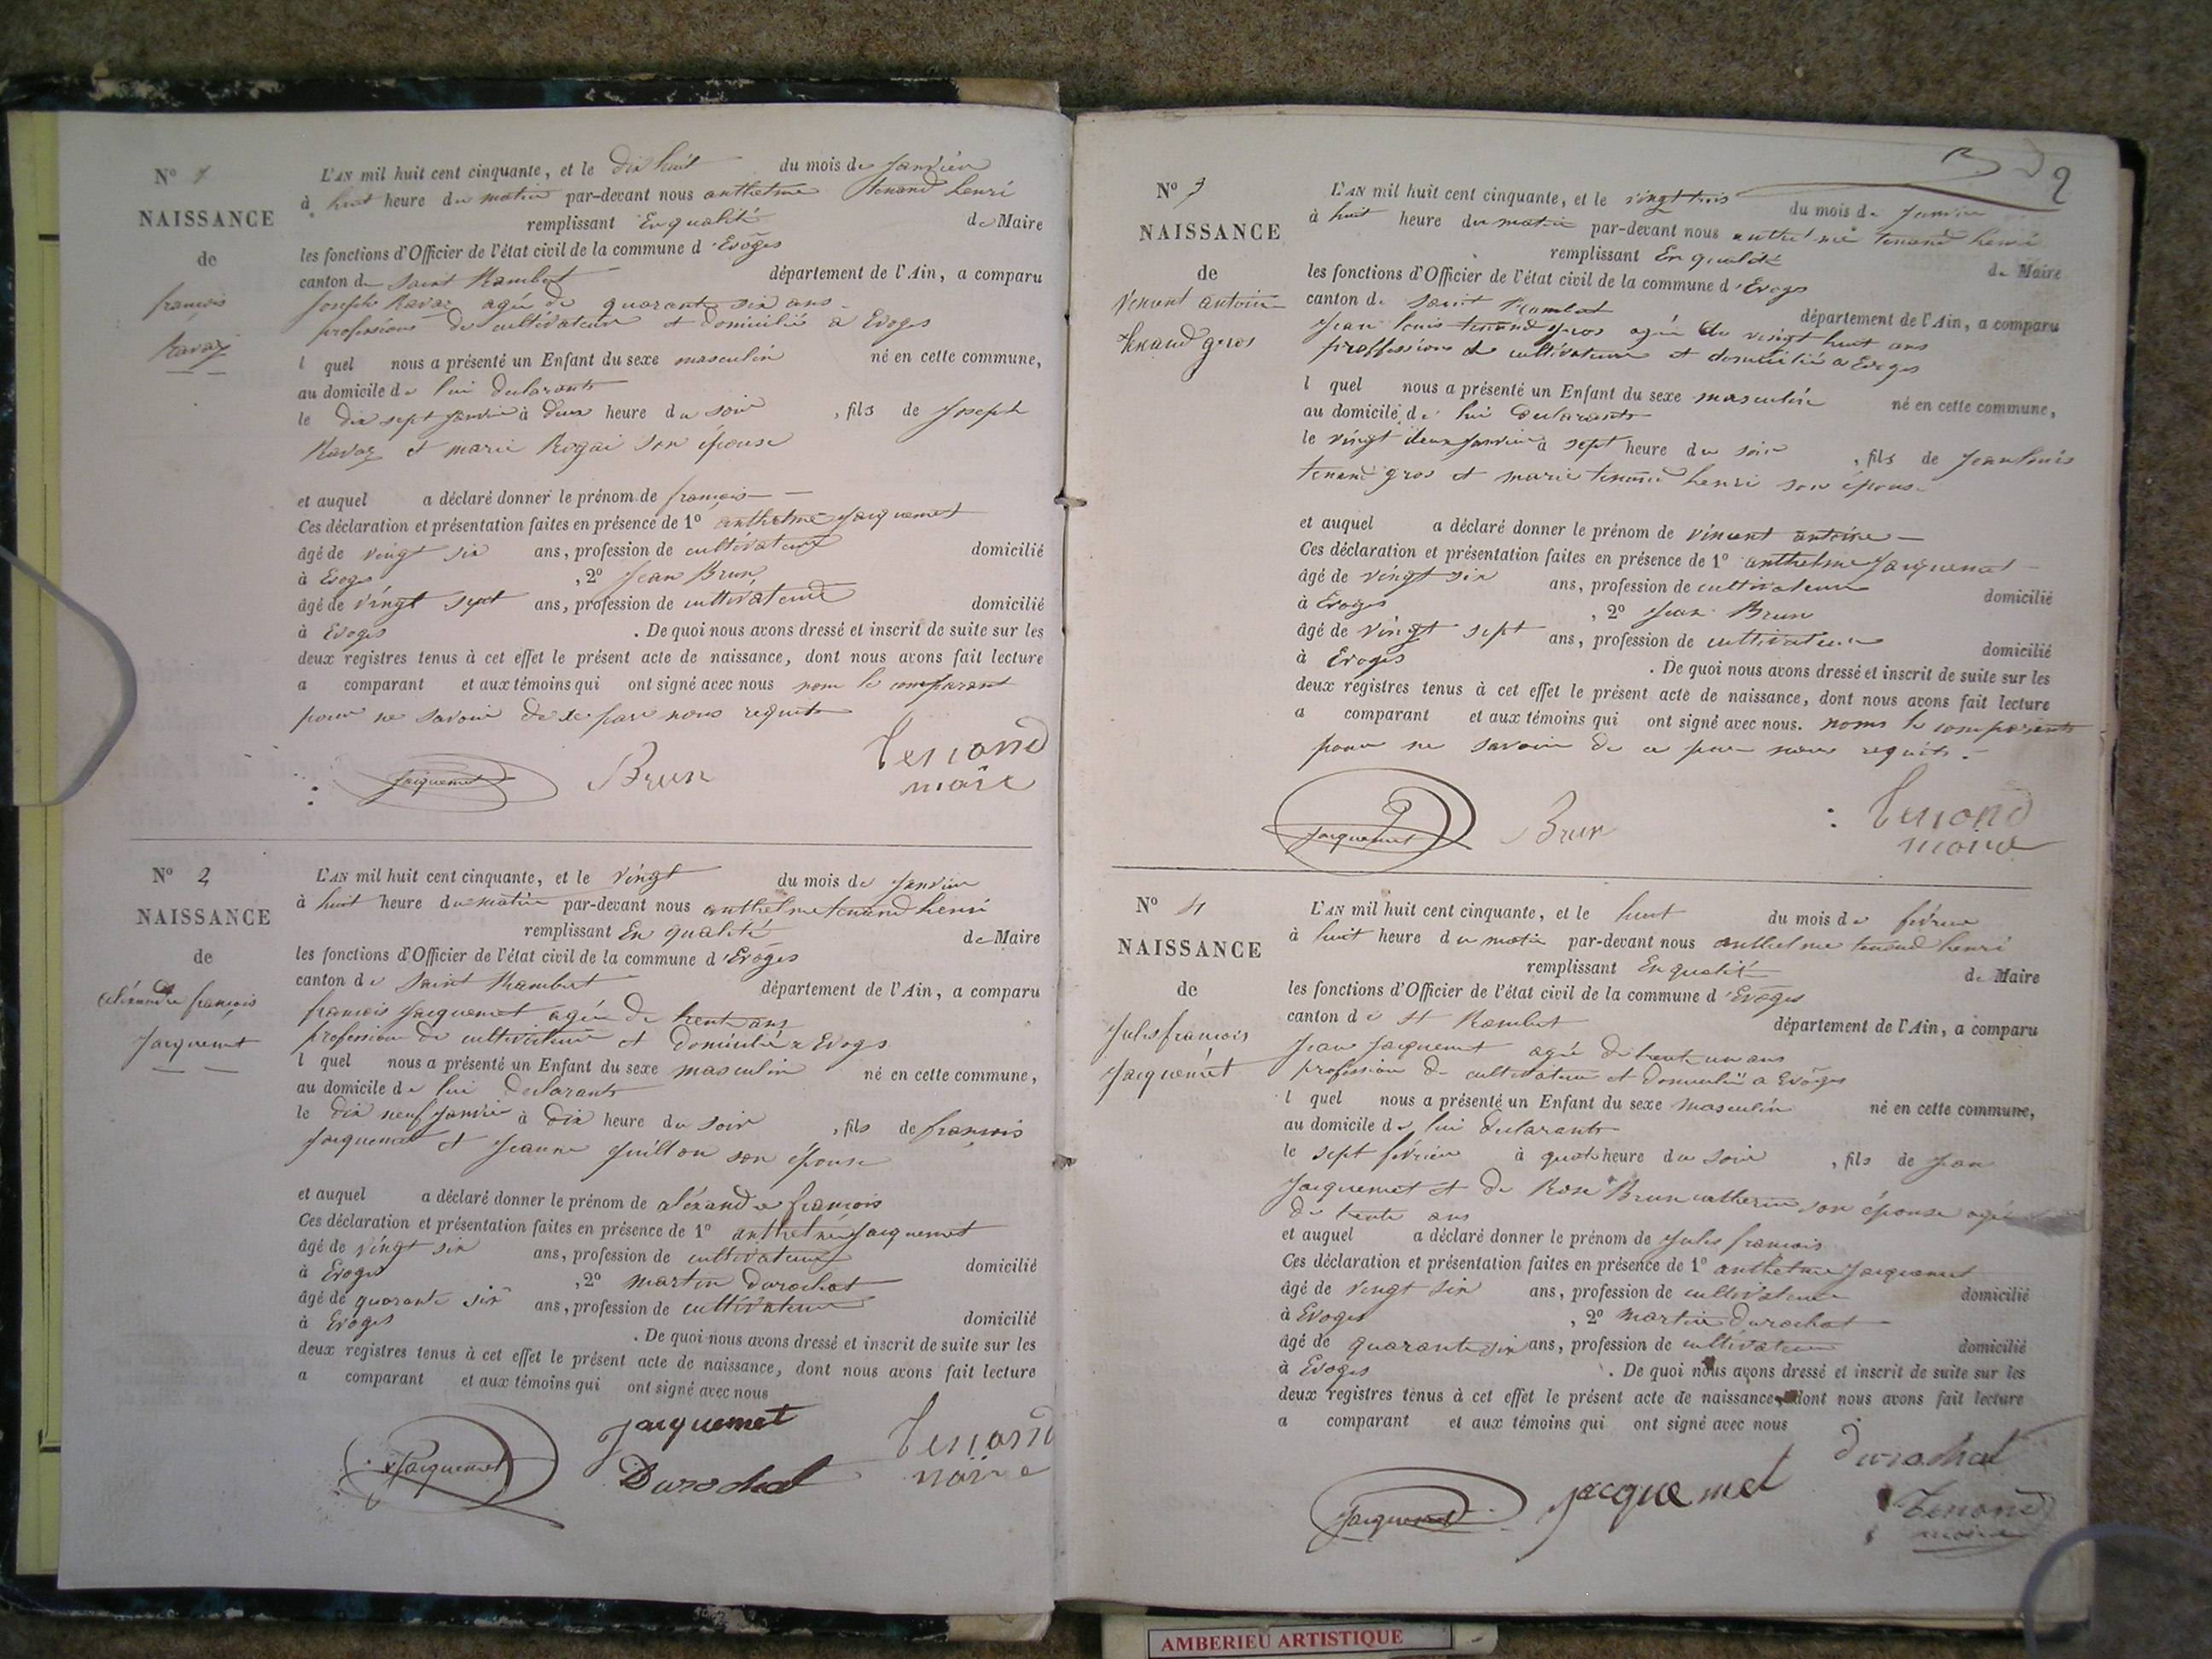 N° 1
NAISSANCE
de
françois
Ravaz
L'AN mil huit cent cinquante, et le dix huit du mois de Janvier
à huit heure du matin par-devant nous anthelme tenand henri
remplissant En qualité de Maire
les fonctions d'Officier de l'état civil de la commune d'Evoges
canton de Saint Rambert département de l'Ain, a comparu
Joseph Ravaz agée de quarante six ans
profession de cultivateur et domicilié a Evoges
l quel nous a présenté un Enfant du sexe masculin né en cette commune,
au domicile de lui declarant
le dix sept Janvier à deux heure du soir, fils de Joseph
Ravaz et marie Rogai son épouse
et auquel a déclaré donner le prénom de françois
Ces déclaration et présentation faites en présence de 1° anthelme Jacquemet
âgé de vingt six ans, profession de cultivateur domicilié
à Evoges, 2° Jean Brun
âgé de vingt sept ans, profession de cultivateur domicilié
à Evoges. De quoi nous avons dressé et inscrit de suite sur les
deux registres tenus à cet effet le présent acte de naissance, dont nous avons fait lecture
a comparant et aux témoins qui ont signé avec nous nom le comparant
pour ne savoir de ce par nous requit
Jacquemet Brun Tenand
maire
N° 2
NAISSANCE
de
aléxandre françois
Jacquemet
L'AN mil huit cent cinquante, et le vingt du mois de Janvier
à huit heure du matin par-devant nous anthelme tenand henri
remplissant En qualité de Maire
les fonctions d'Officier de l'état civil de la commune d'Evoges
canton de Saint Rambert département de l'Ain, a comparu
françois Jacquemet agée de trente ans
profession de cultivateur et domicilié a Evoges
l quel nous a présenté un Enfant du sexe masculin né en cette commune,
au domicile de lui declarant
le dix neuf Janvier à dix heure du soir, fils de françois
Jacquemet et Jeanne Juillon son épouse
et auquel a déclaré donner le prénom de aléxandre françois
Ces déclaration et présentation faites en présence de 1° anthelme Jacquemet
âgé de vingt six ans, profession de cultivateur domicilié
à Evoges, 2° martin Durochat
âgé de quarante six ans, profession de cultivateur domicilié
à Evoges. De quoi nous avons dressé et inscrit de suite sur les
deux registres tenus à cet effet le présent acte de naissance, dont nous avons fait lecture
a comparant et aux témoins qui ont signé avec nous
Jacquemet Jacquemet Tenand
Durochat maire
2
N° 3
NAISSANCE
de
vincent antoine
tenand gros
L'AN mil huit cent cinquante, et le vingt trois du mois de Janvier
à huit heure du matin par-devant nous anthelme tenand henri
remplissant En qualité de Maire
les fonctions d'Officier de l'état civil de la commune d'Evoges
canton de Saint Rambert département de l'Ain, a comparu
Jean louis tenand gros agée de vingt huit ans
proffession de cultivateur et domicilié a Evoges
l quel nous a présenté un Enfant du sexe masculin né en cette commune,
au domicile de lui declarant
le vingt deux Janvier à sept heure du soir, fils de Jean louis
tenand gros et marie tenand henri son épouse
et auquel a déclaré donner le prénom de vincent antoine
Ces déclaration et présentation faites en présence de 1° anthelme Jacquemet
âgé de vingt six ans, profession de cultivateur domicilié
à Evoges, 2° Jean Brun
âgé de vingt sept ans, profession de cultivateur domicilié
à Evoges. De quoi nous avons dressé et inscrit de suite sur les
deux registres tenus à cet effet le présent acte de naissance, dont nous avons fait lecture
a comparant et aux témoins qui ont signé avec nous. nom le comparant
pour ne savoir de ce par nous requit
Jacquemet Brun Tenand
maire
N° 4
NAISSANCE
de
Jules françois
Jacquemet
L'AN mil huit cent cinquante, et le huit du mois de février
à huit heure du matin par-devant nous anthelme tenand henri
remplissant En qualité de Maire
les fonctions d'Officier de l'état civil de la commune d'Evoges
canton de St Rambert département de l'Ain, a comparu
Jean Jacquemet agée de trente un ans
profession de cultivateur et domicilié a Evoges
l quel nous a présenté un Enfant du sexe masculin né en cette commune,
au domicile de lui declarant
le sept février à quatre heure du soir, fils de Jean
Jacquemet et de Rose Brun catherin son épouse agée
de trente ans
et auquel a déclaré donner le prénom de Jules françois
Ces déclaration et présentation faites en présence de 1° anthelme Jacquemet
âgé de vingt six ans, profession de cultivateur domicilié
à Evoges, 2° martin Durochat
âgé de quarante six ans, profession de cultivateur domicilié
à Evoges. De quoi nous avons dressé et inscrit de suite sur les
deux registres tenus à cet effet le présent acte de naissance, dont nous avons fait lecture
a comparant et aux témoins qui ont signé avec nous
Durochat
Jacquemet Jacquemet Tenand
maire
AMBERIEU ARTISTIQUE